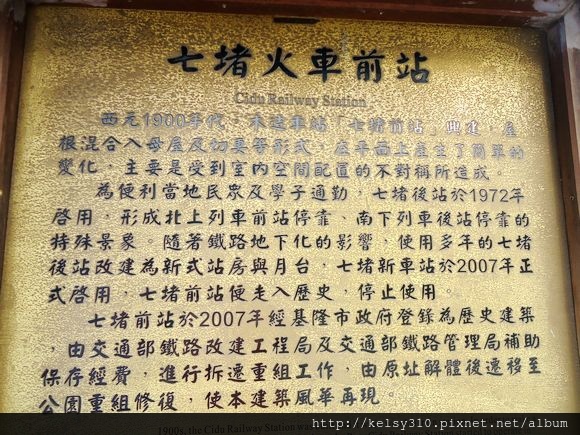 七堵火車前站
Cidu Railway Station
西元1900年代,木造車站「七堵前站」興建,屋
根混合入母屋及切妻等形式,在平面上產生了簡單的
變化,主要是受到室內空間配置的不對稱所造成。
為便利當地民眾及學子通勤,七堵後站於1972年
啓用,形成北上列車前站停靠、南下列車後站停靠的
特殊景象。隨著鐵路地下化的影響,使用多年的七堵
後站改建為新式站房與月台,七堵新車站於2007年正
式啓用,七堵前站便走入歷史,停止使用。
七堵前站於2007年經基隆市政府登錄為歷史建築
,由交通部鐵路改建工程局及交通部鐵路管理局補助
保存經費,進行拆遷重組工作,由原址解體後遷移至
公園重組修復,使本建築風華再現。
1900s, the Cidu Railway Station was
http://kelsy310.pixnet.net/album